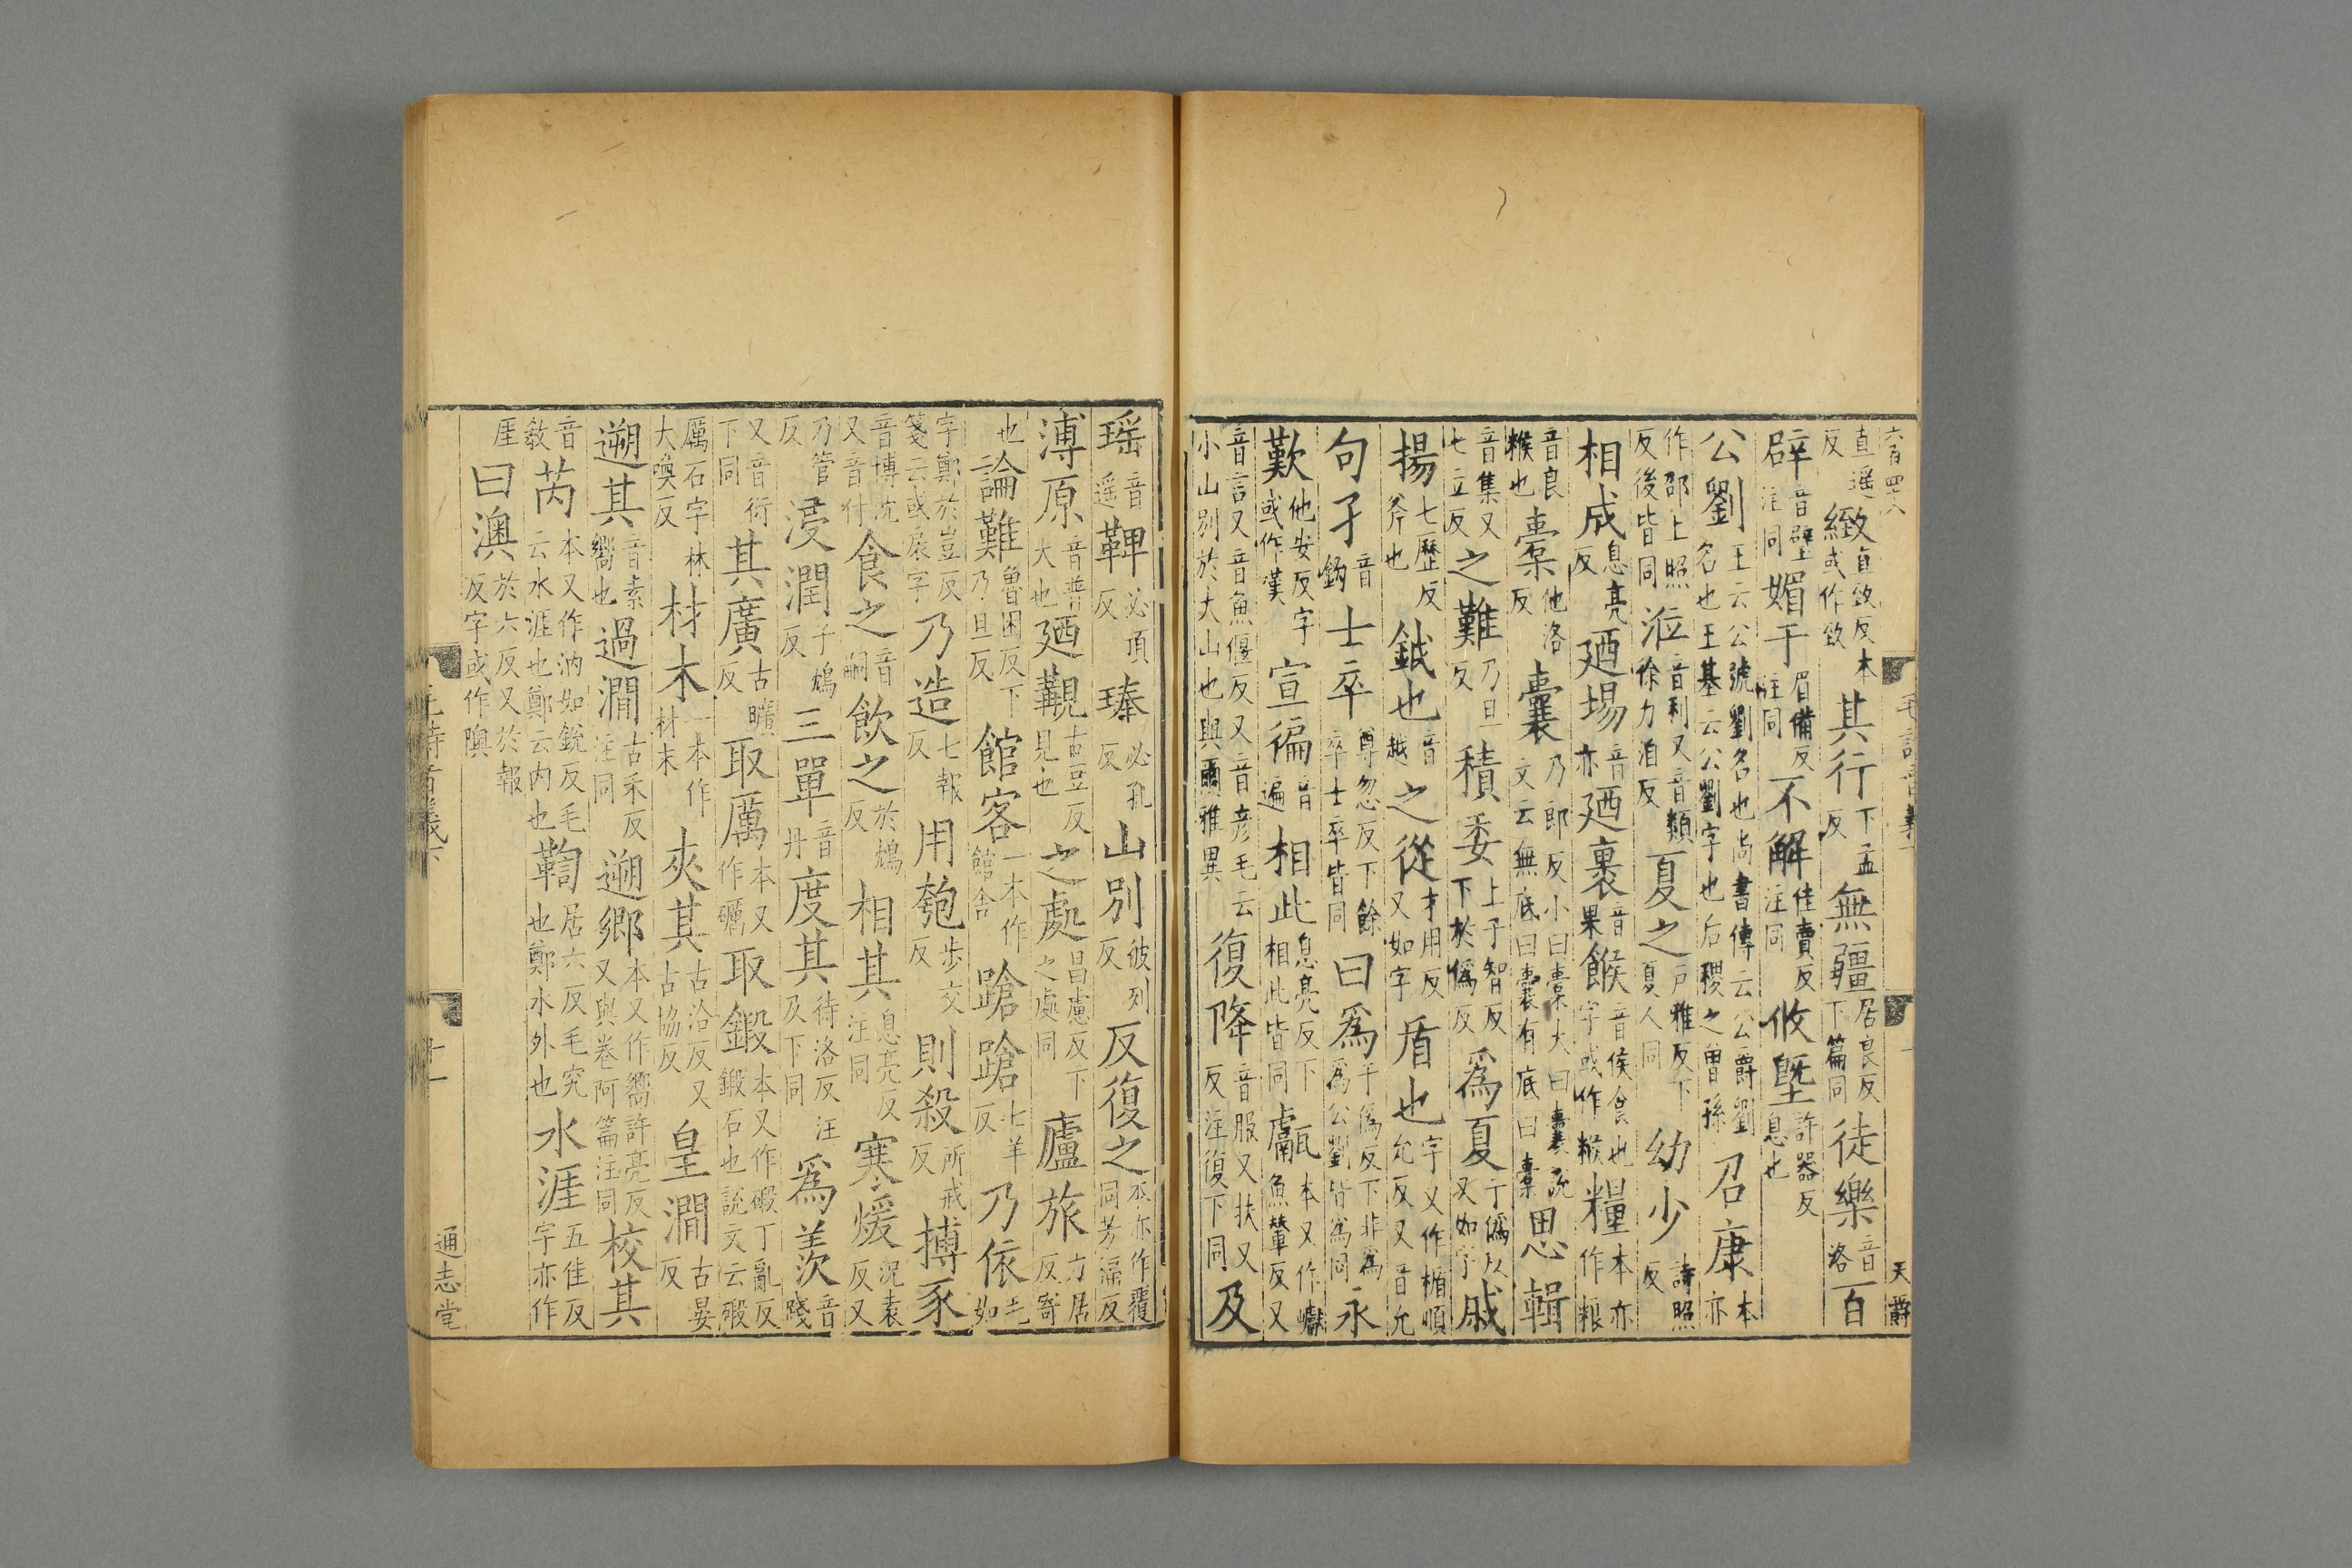 六百四十八
直遥反 緻直致反本或作致 其行下孟反 無疆居良反下篇同 徒樂音洛 百
辟音璧注同 媚于眉備反注同 不解佳賣反注同 攸墍許器反息也
公劉王云公號劉名也尚書傳云公爵劉名也王基云公劉字也后稷之曾孫 召康本亦
作邵上照反後皆同 涖音利又音類徐力洎反 夏之戸雅反下夏人同 幼少詩照反
相成息亮反 廼埸音亦 廼裹音果 餱音侯食也字或作糇 糧本亦作粮
音良糇也 橐他洛反 囊乃郎反小曰橐大曰囊説文云無底曰囊有底曰橐 思輯
音集又七立反 之難乃旦反 積委上子智反下於僞反 爲夏于僞反又如字 戚
揚七歷反斧也 鉞也音越 之從才用反又如字 盾也字又作楯順允反又音允
句孑音鉤 士卒尊忽反下餘卒士卒皆同 曰爲于僞反下非爲爲公劉皆爲同 永
歎他安反字或作漢 宣徧音遍 相此息亮反下相此皆同 甗本又作巘魚輦反又
音言又音魚偃反又音彦毛云小山別於大山也與爾雅異 復降音服又扶又反注復下同 及
天爵
瑶音遥 鞞必頂反 琫必孔反 山別彼列反 反復之本亦作覆同芳福反
溥原音普大也 廼覯古豆反見也 之處昌慮反下之處同 廬旅力居反寄
也 論難魯困反下乃旦反 館客一本作館舍 蹌蹌七羊反 乃依毛如
字鄭於豈反箋云或扆字 乃造七報反 用匏步交反 則殺所戒反 搏豕
音博沈又音付 食之音嗣 飲之於鴆反 相其息亮反注同 寒煖況袁反又
乃管反 浸潤子鴆反 三單音丹 度其待洛反注及下同 爲羨音踐
又音衍下同 其廣古曠反 取厲本又作礪 取鍛本又作碫丁亂反鍛石也説文云碫
厲石字林大喚反 材木一本作材末 夾其古洽反又古協反 皇澗古晏反
遡其音素嚮也 過澗古禾反注同 遡鄉本又作嚮許亮反又與卷阿篇注同 校其
音教 芮本又作汭如銳反毛云水涯也鄭云内也 鞫居六反毛究也鄭水外也 水涯五佳反字亦作
厓 曰澳於六反又於報反字或作隩
毛詩音義下
廿一
通志堂